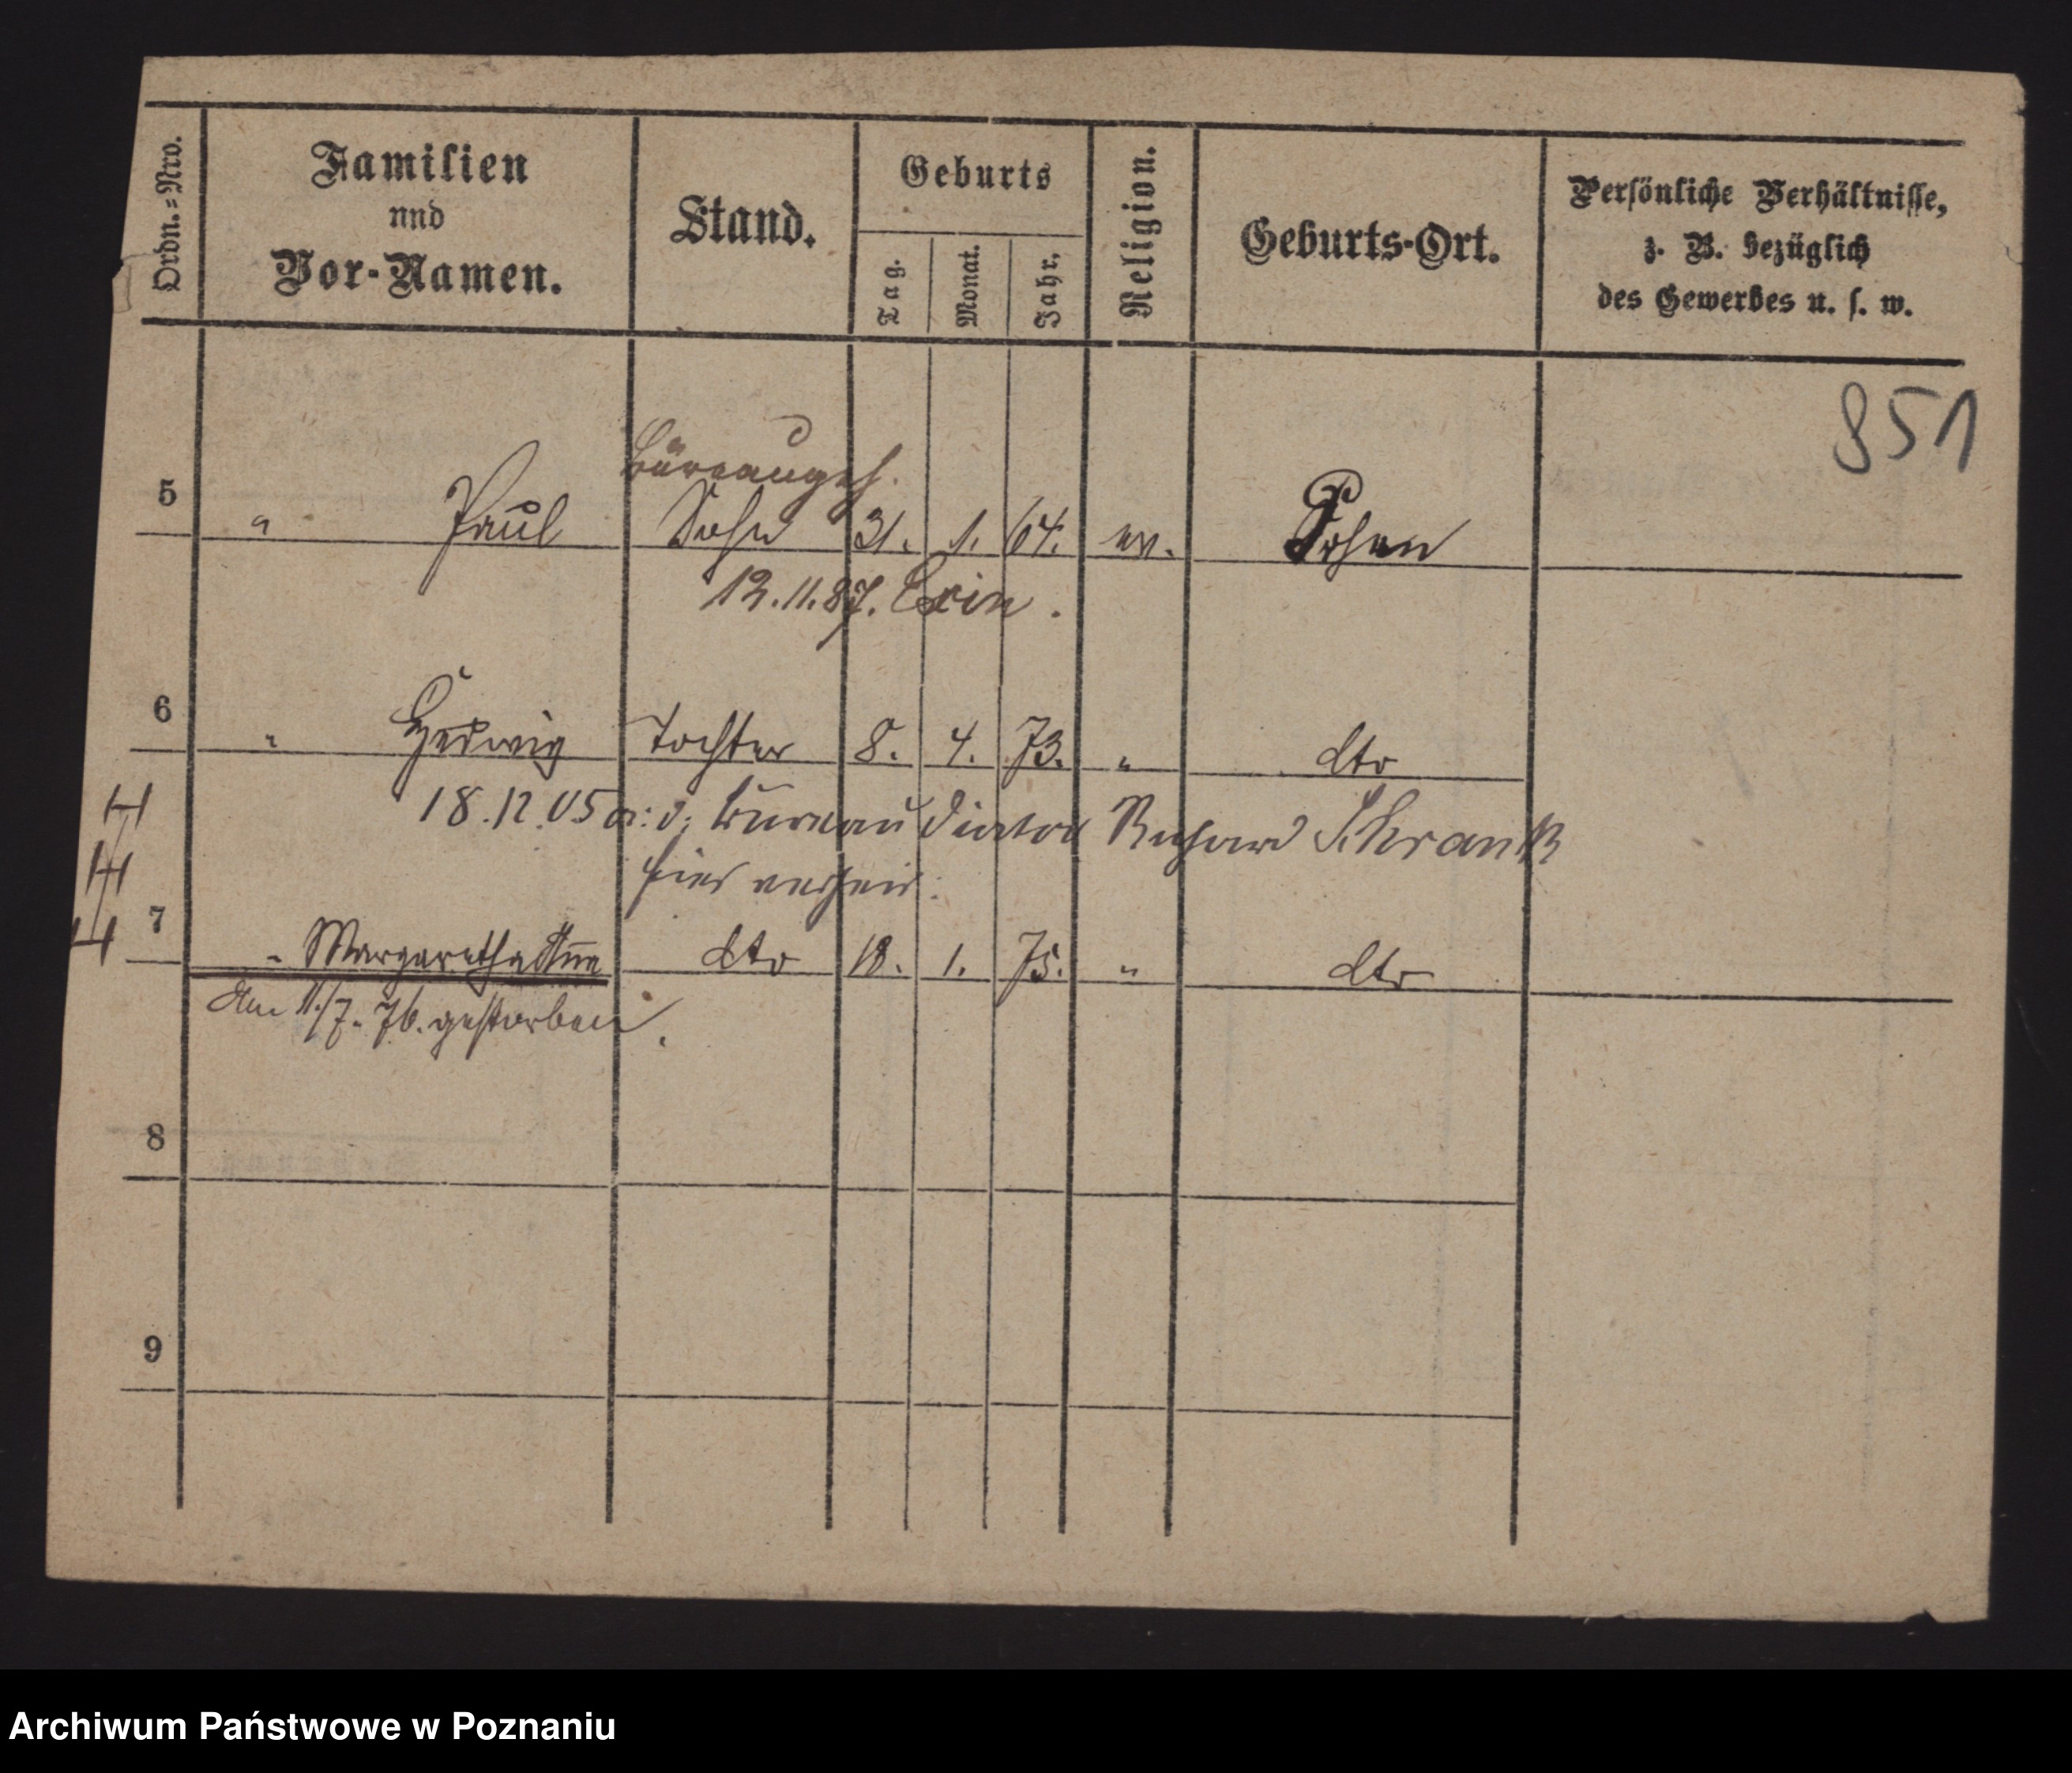 Ordn.=Nro.
Familien
und
Vor-Namen.
Stand.
Geburts
Tag.
Monat.
Jahr.
Religion.
Geburts-Ort.
Persönliche Verhältnisse,
z. B. bezüglich
des Gewerbes u. s. w.
851
Büreaugeh.
5 " Paul Sohn 31. 1. 64. ev. Posen
12.11.87. Exin.
6 " Hedwig Tochter 8. 4. 73. " dto
18.12.05 a: d: Bureau Diätar Richard Schrank
hier verheir.
7 " Margaretha Anna dto 18. 1. 75. " dto
Am 11./7. 76. gestorben.
8
9
Archiwum Państwowe w Poznaniu